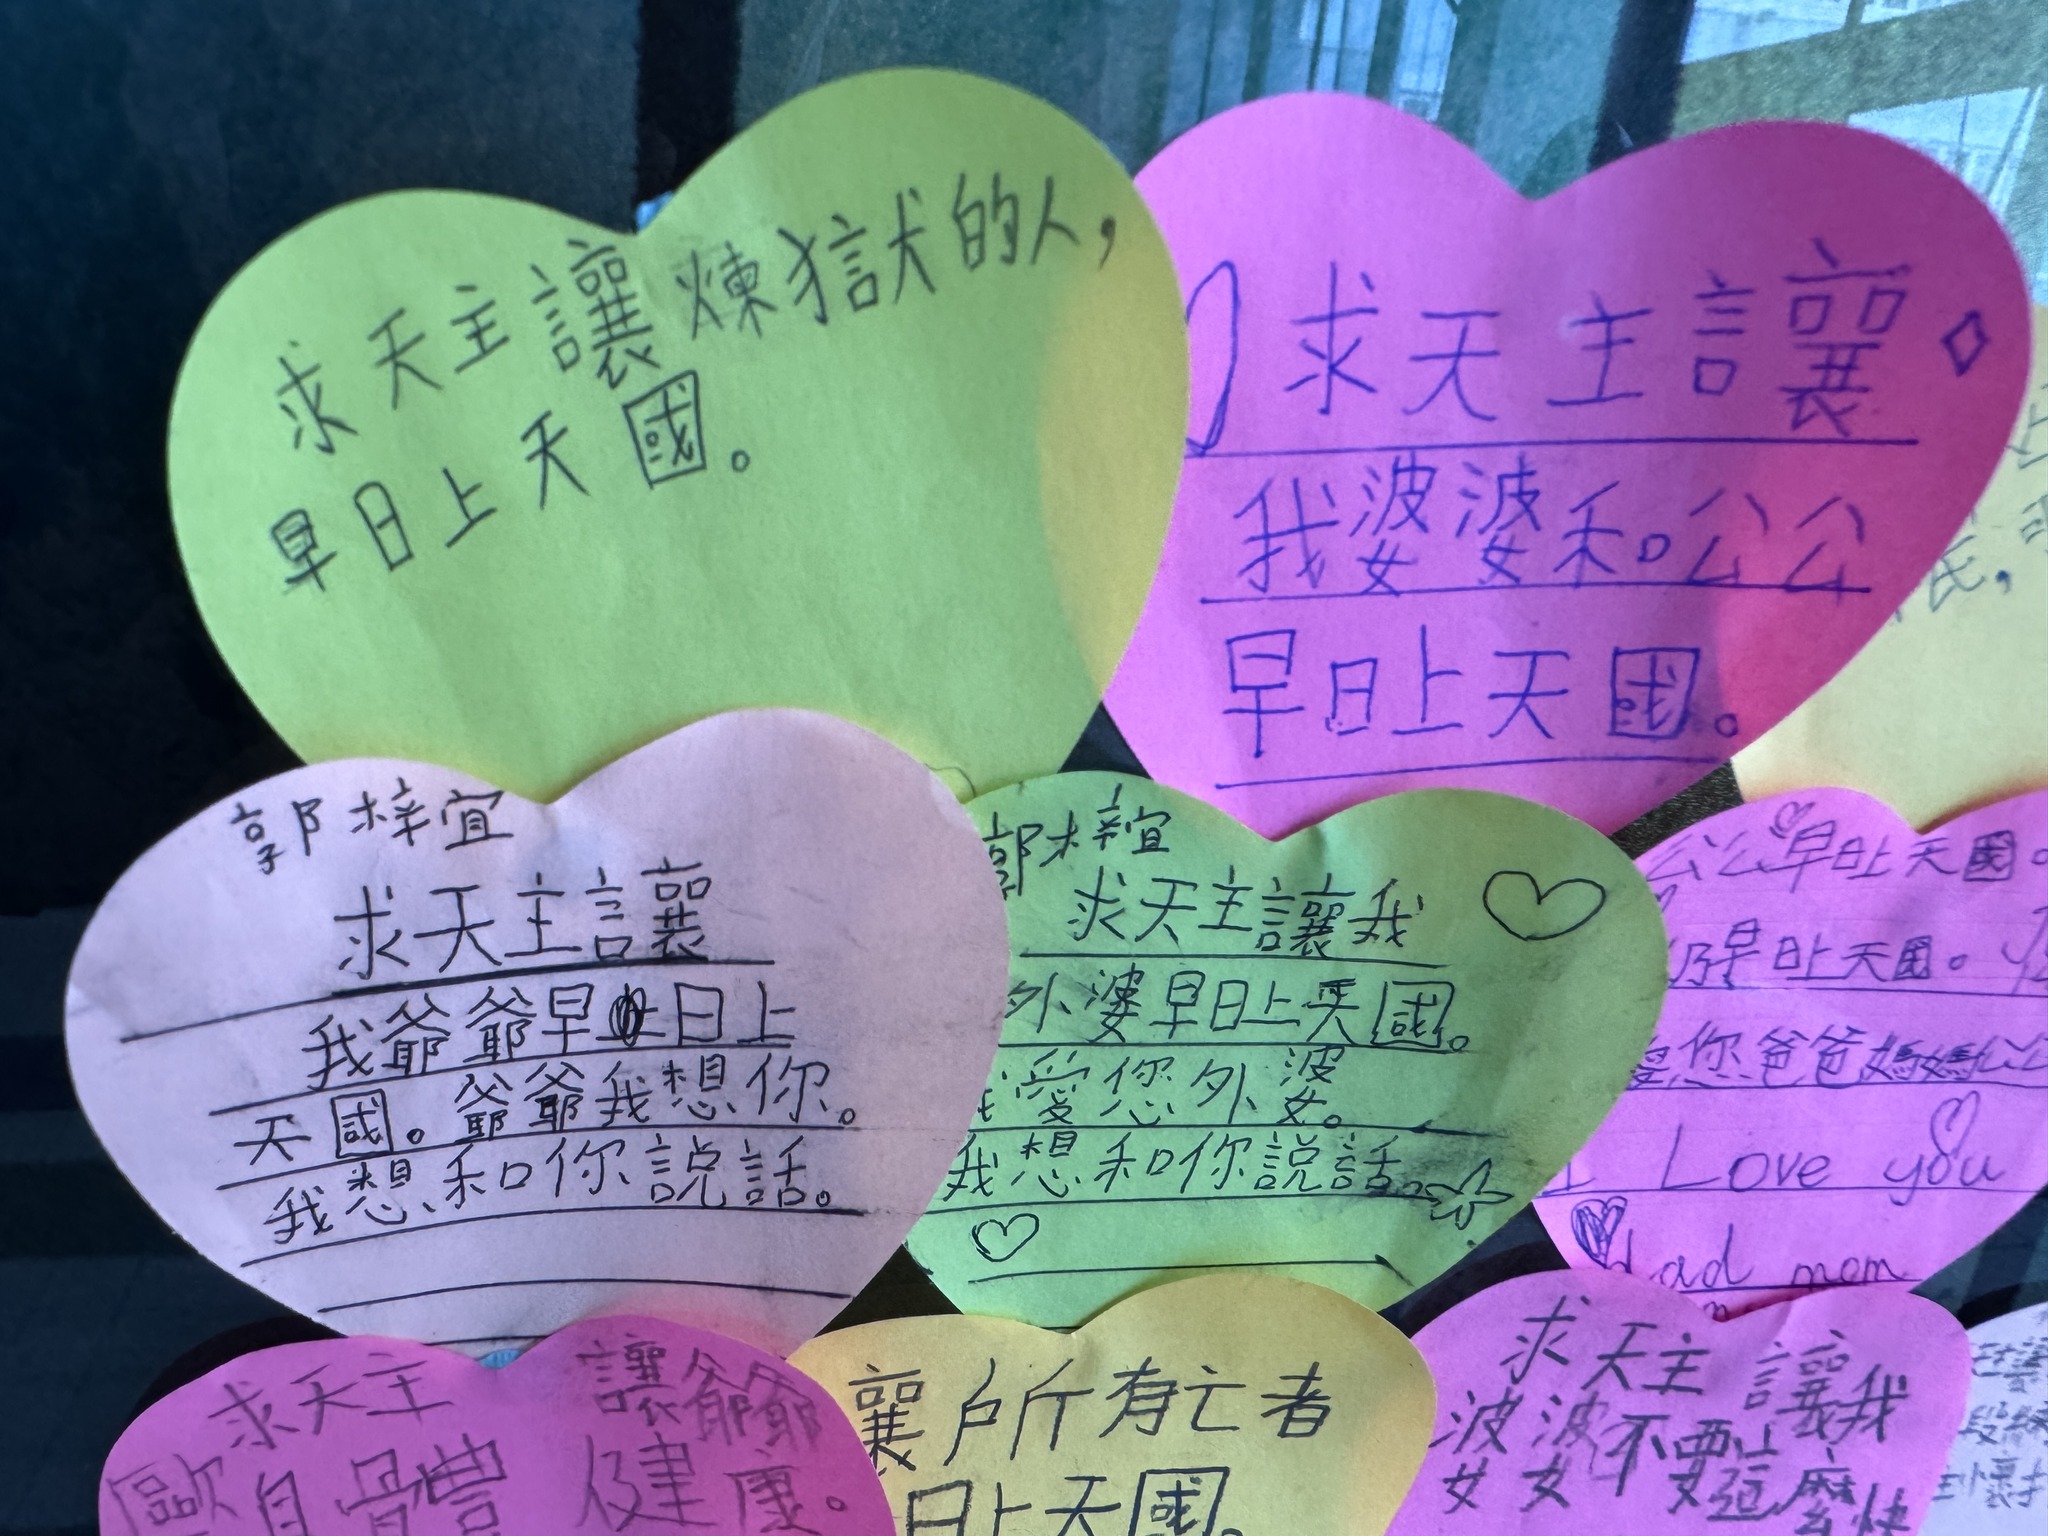 求天主讓煉獄的人，
早日上天國。
求天主讓
我婆婆和公公
早日上天國。
郭梓宜
求天主讓
我爺爺早日上
天國。爺爺我想你。
我想和你說話。
郭梓宜
求天主讓我
外婆早日上天國。
我愛您外婆。
我想和你說話。
公公早日上天國。
早日上天國。
愛您爸爸媽媽公公
I Love you
dad mom
求天主 讓爺爺
身體健康。
讓所有亡者
日上天國。
求天主讓我
婆婆不要這麼快